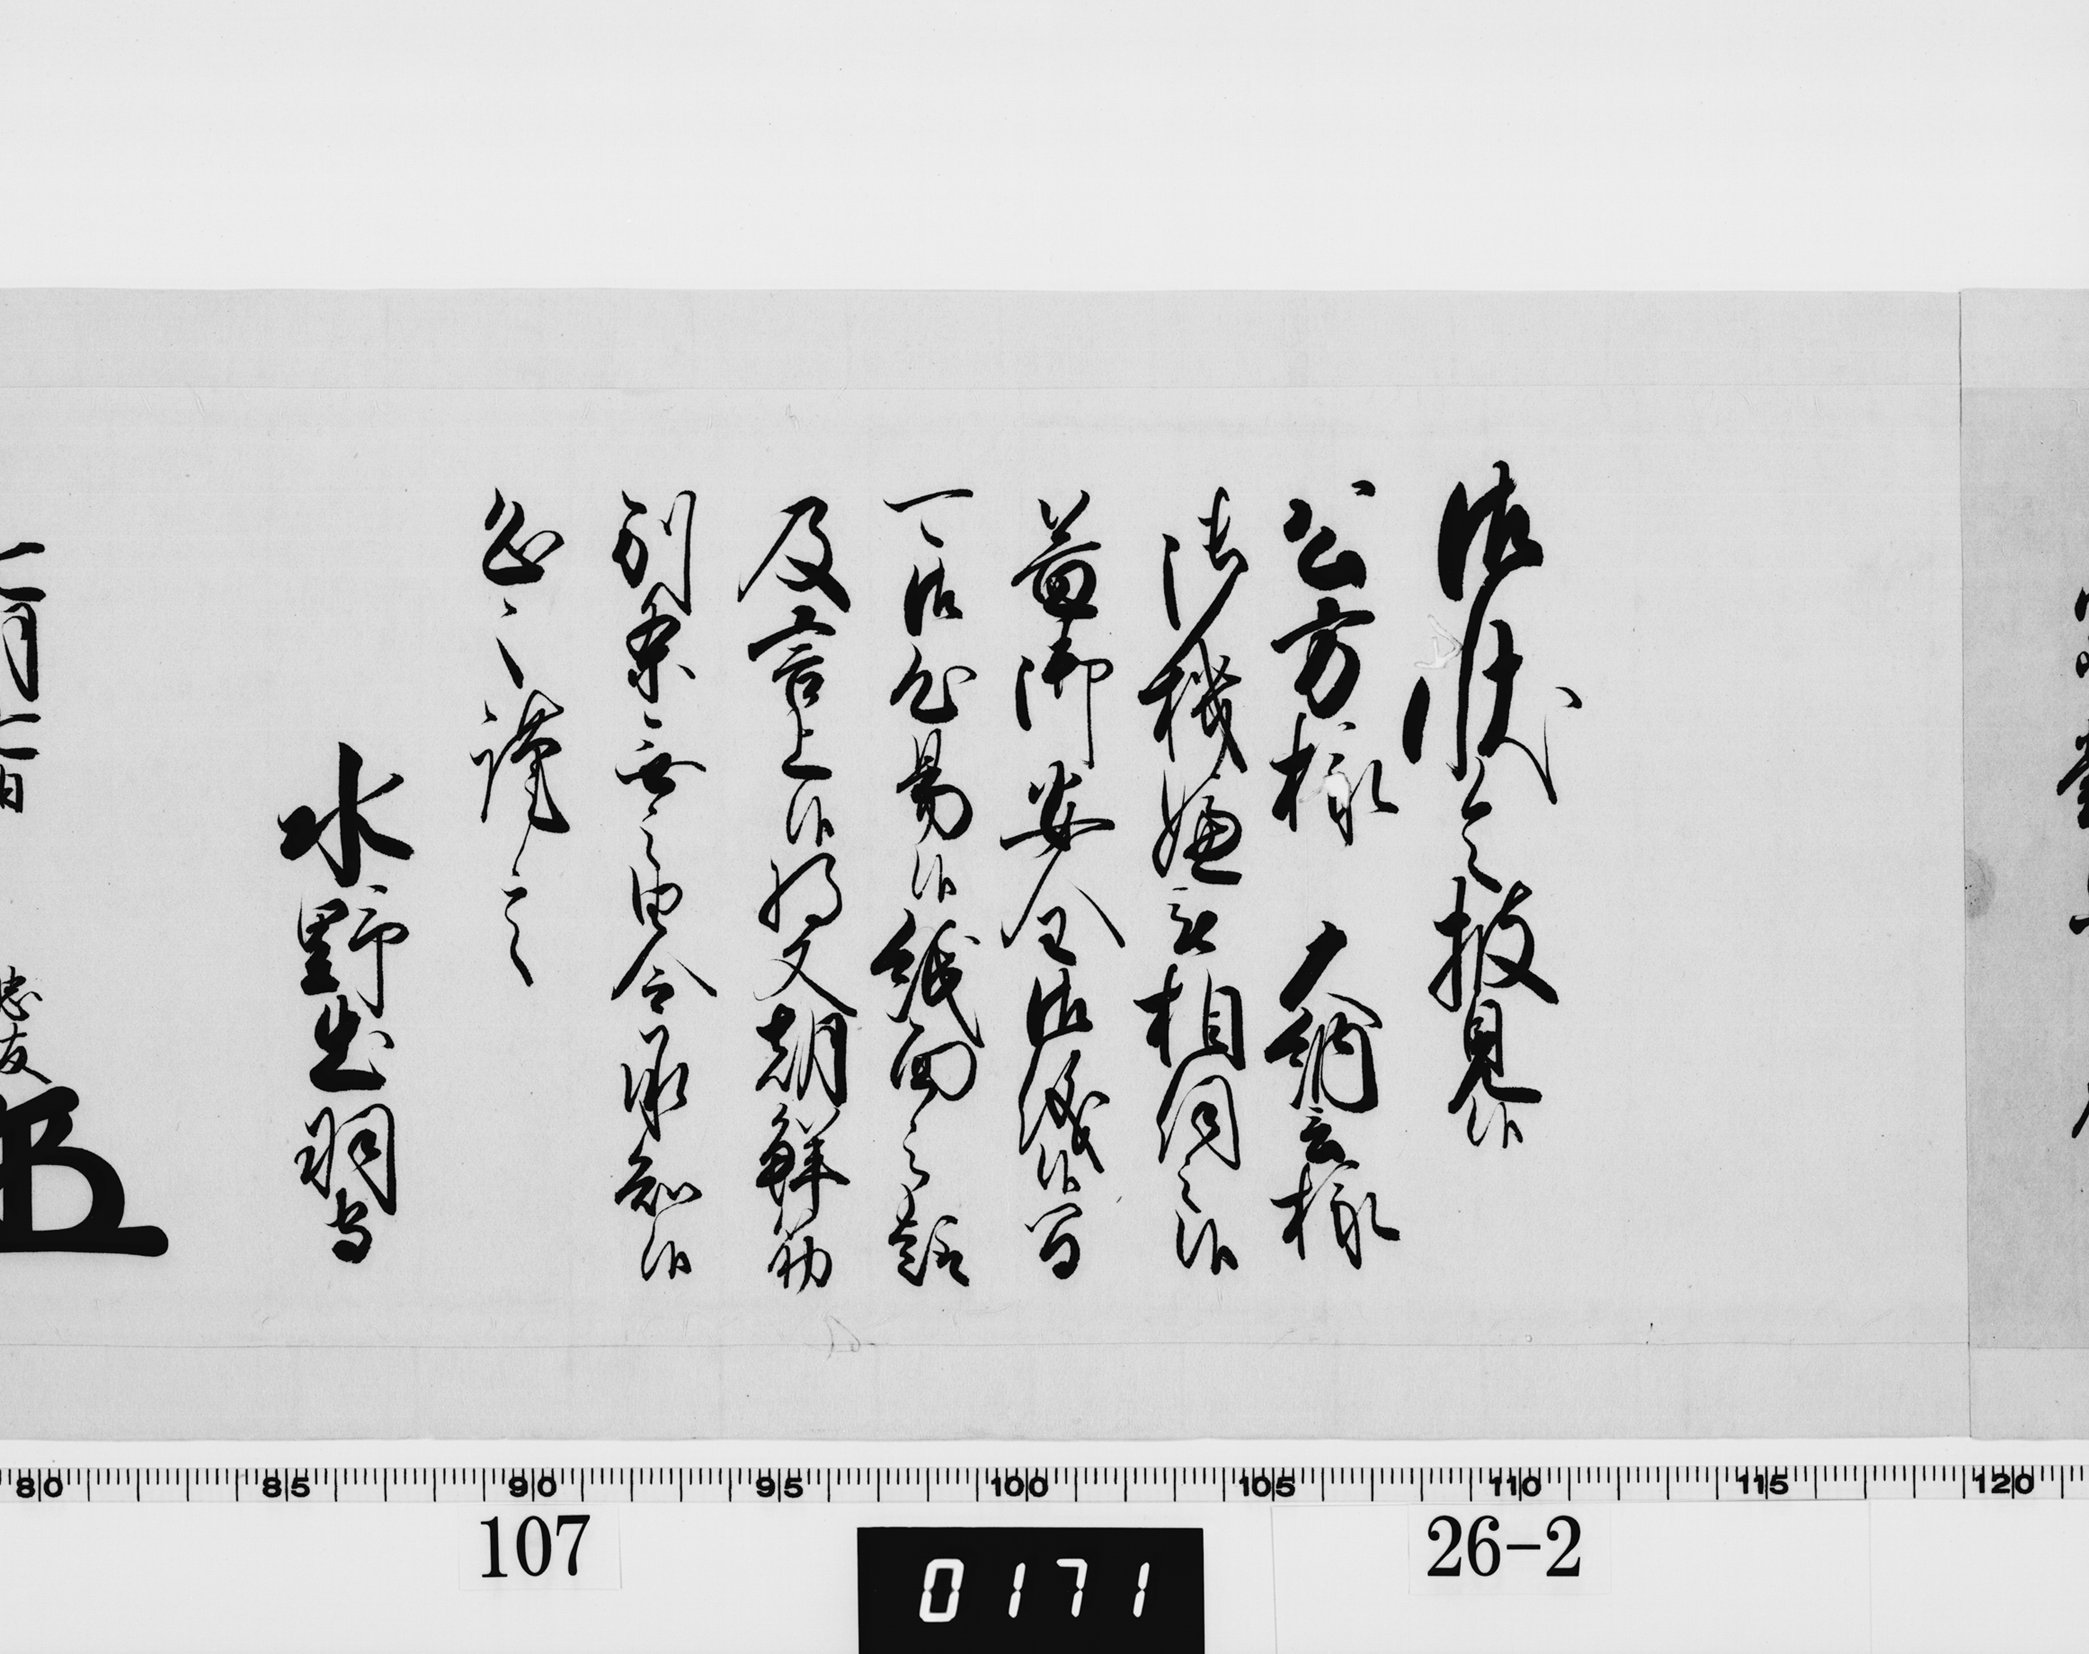 御状令披見候
公方様 大納言様
御機嫌被相伺之候
益御安全御儀候間
可御心易候紙面之趣
及言上候将又朝鮮筋
別条無之由令承知候
恐々謹言
水野出羽守
七月七日 忠友
80 85 90 95 100 105 110 115 120
107
0171
26-2